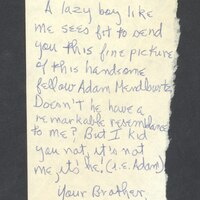 A lazy boy like
me sees fit to send
you this fine picture
of this handsome
fellow Adam Mendlowitz.
Doesn't he have a
remarkable resemblance
to me? But I kid
you not, it's not
me, it's he! (i.e. Adam)
Your Brother,